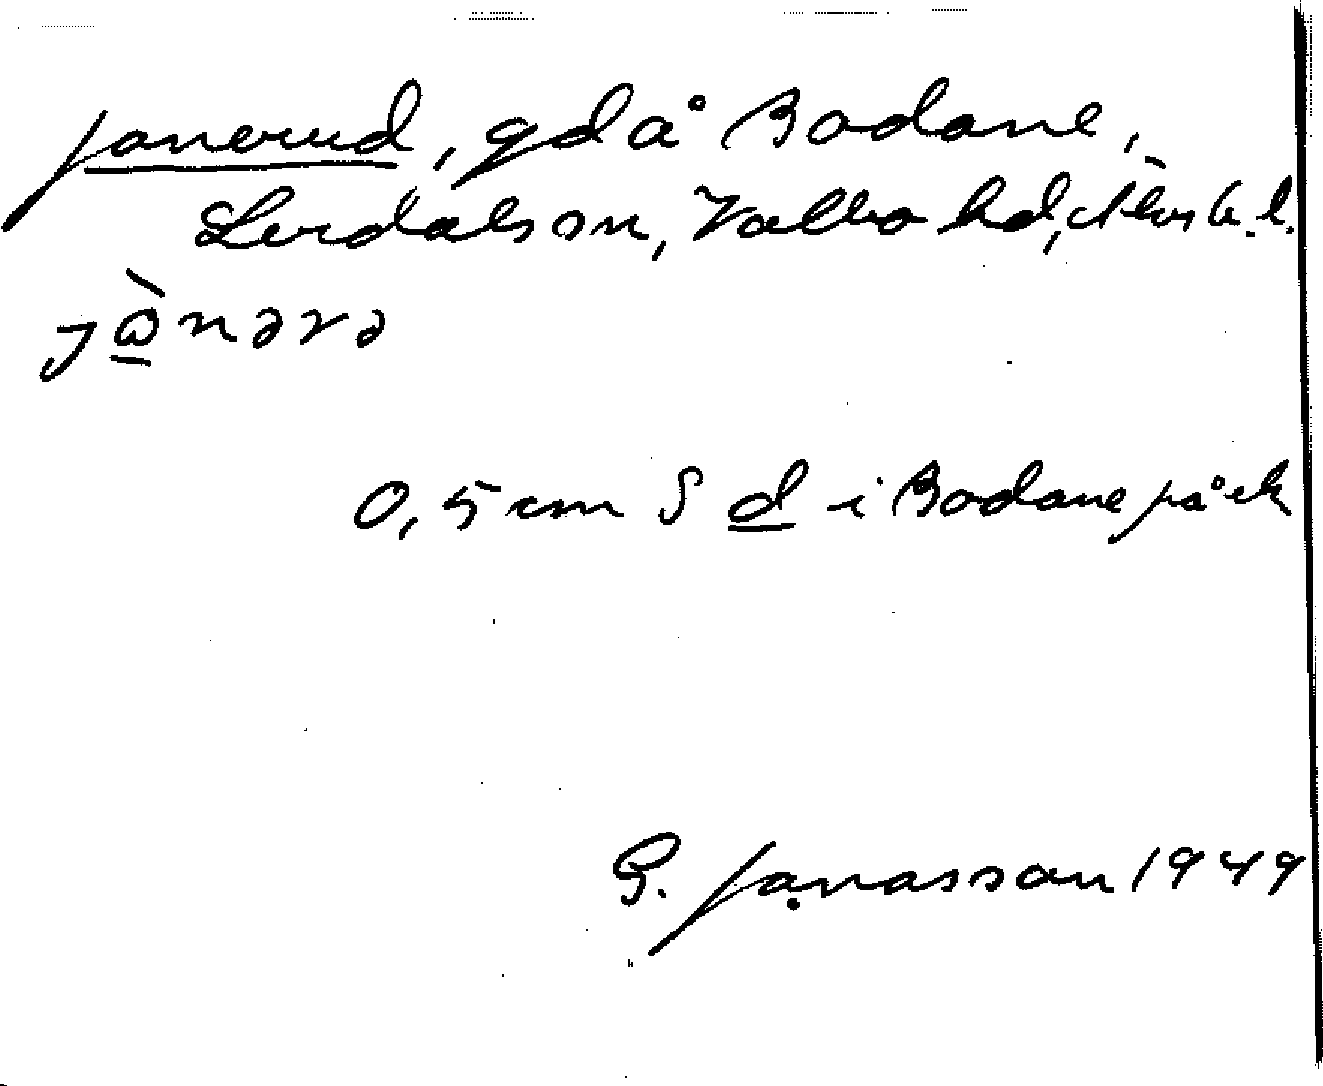 Jonerud, gd å Bodane,
Lerdals sn, Valbo hd, Älvsb. l.
jὼnərə
0,5 cm S d i Bodane på ek
G. Jonasson 1949